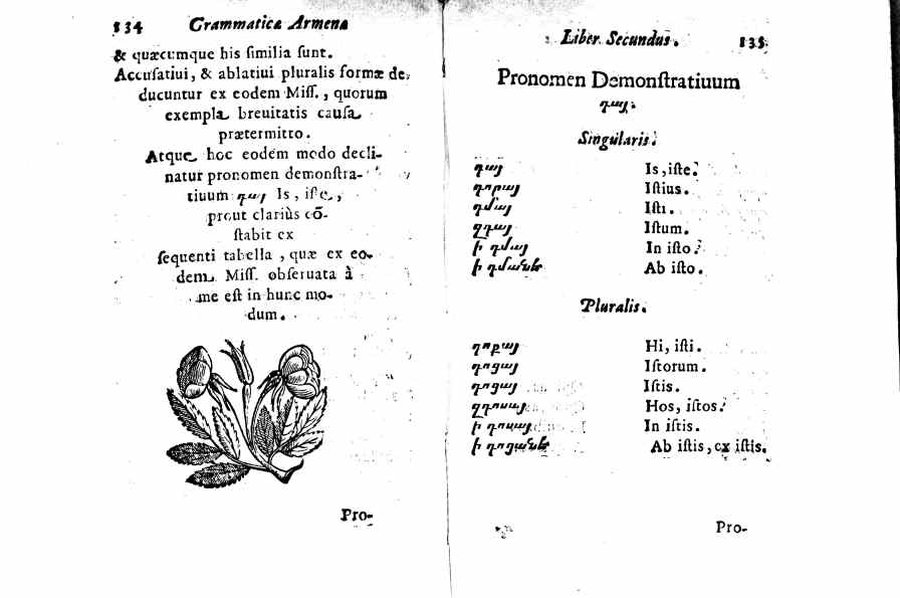 134 Grammaticæ Armenæ
& quæcumque his ſimilia ſunt.
Accuſatiui, & ablatiui pluralis formæ de-
ducuntur ex eodem Miſſ., quorum
exempla breuitatis cauſa
prætermitto.
Atque hoc eodem modo decli-
natur pronomen demonſtra-
tiuum դայ Is, iſte,
prout clariùs cõ-
ſtabit ex
ſequenti tabella, quæ ex eo-
dem Miſſ. obſeruata à
me eſt in hunc mo-
dum.
Pro-
Liber Secundus. 135
Pronomen Demonſtratiuum
դայ.
Singularis.
դայ Is, iſte.
դորայ Iſtius.
դմայ Iſti.
զդայ Iſtum.
ի դմայ In iſto.
ի դմանէ Ab iſto.
Pluralis.
դոքայ Hi, iſti.
դոցայ Iſtorum.
դոցայ Iſtis.
զդոսայ Hos, iſtos.
ի դոսայ In iſtis.
ի դոցանէ Ab iſtis, ex iſtis.
Pro-